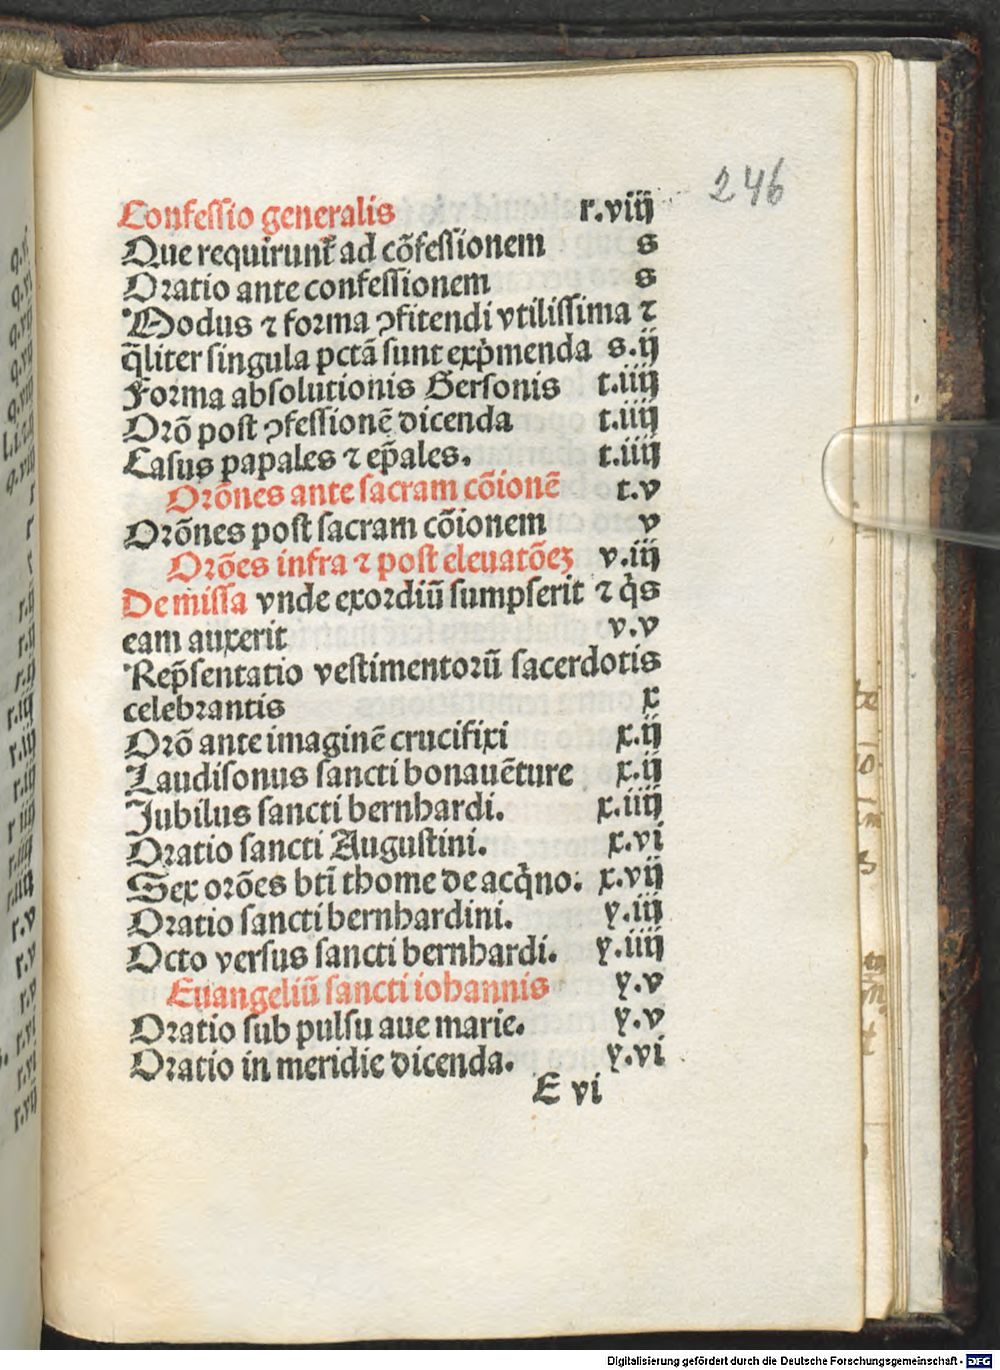 246
Confessio generalis r.viij
Que requirunt᷑ ad cõfessionem s
Oratio ante confessionem s
Modus ⁊ forma ꝯfitendi vtilissima ⁊
q̃liter singula pctã sunt exp̾menda s.ij
Forma absolutionis Gersonis t.iiij
Orõ post ꝯfessionẽ dicenda t.iiij
Casus papales ⁊ ep̃ales. t.iiij
Orõnes ante sacram cõionẽ t.v
Orõnes post sacram cõionem v
Orões infra ⁊ post eleuatõeꝫ v.iij
De missa vnde exordiũ sumpserit ⁊ q̾s
eam auxerit v.v
Rep̃sentatio vestimentorũ sacerdotis
celebrantis x
Orõ ante imaginẽ crucifixi x.ij
Laudisonus sancti bonauẽture x.ij
Jubilus sancti bernhardi. x.iiij
Oratio sancti Augustini. x.vi
Sex orões bti̾ thome de acq̾no. x.vij
Oratio sancti bernhardini. y.iij
Octo versus sancti bernhardi. y.iiij
Euangeliũ sancti iohannis y.v
Oratio sub pulsu aue marie. y.v
Oratio in meridie dicenda. y.vi
E vi
Digitalisierung gefördert durch die Deutsche Forschungsgemeinschaft - DFG